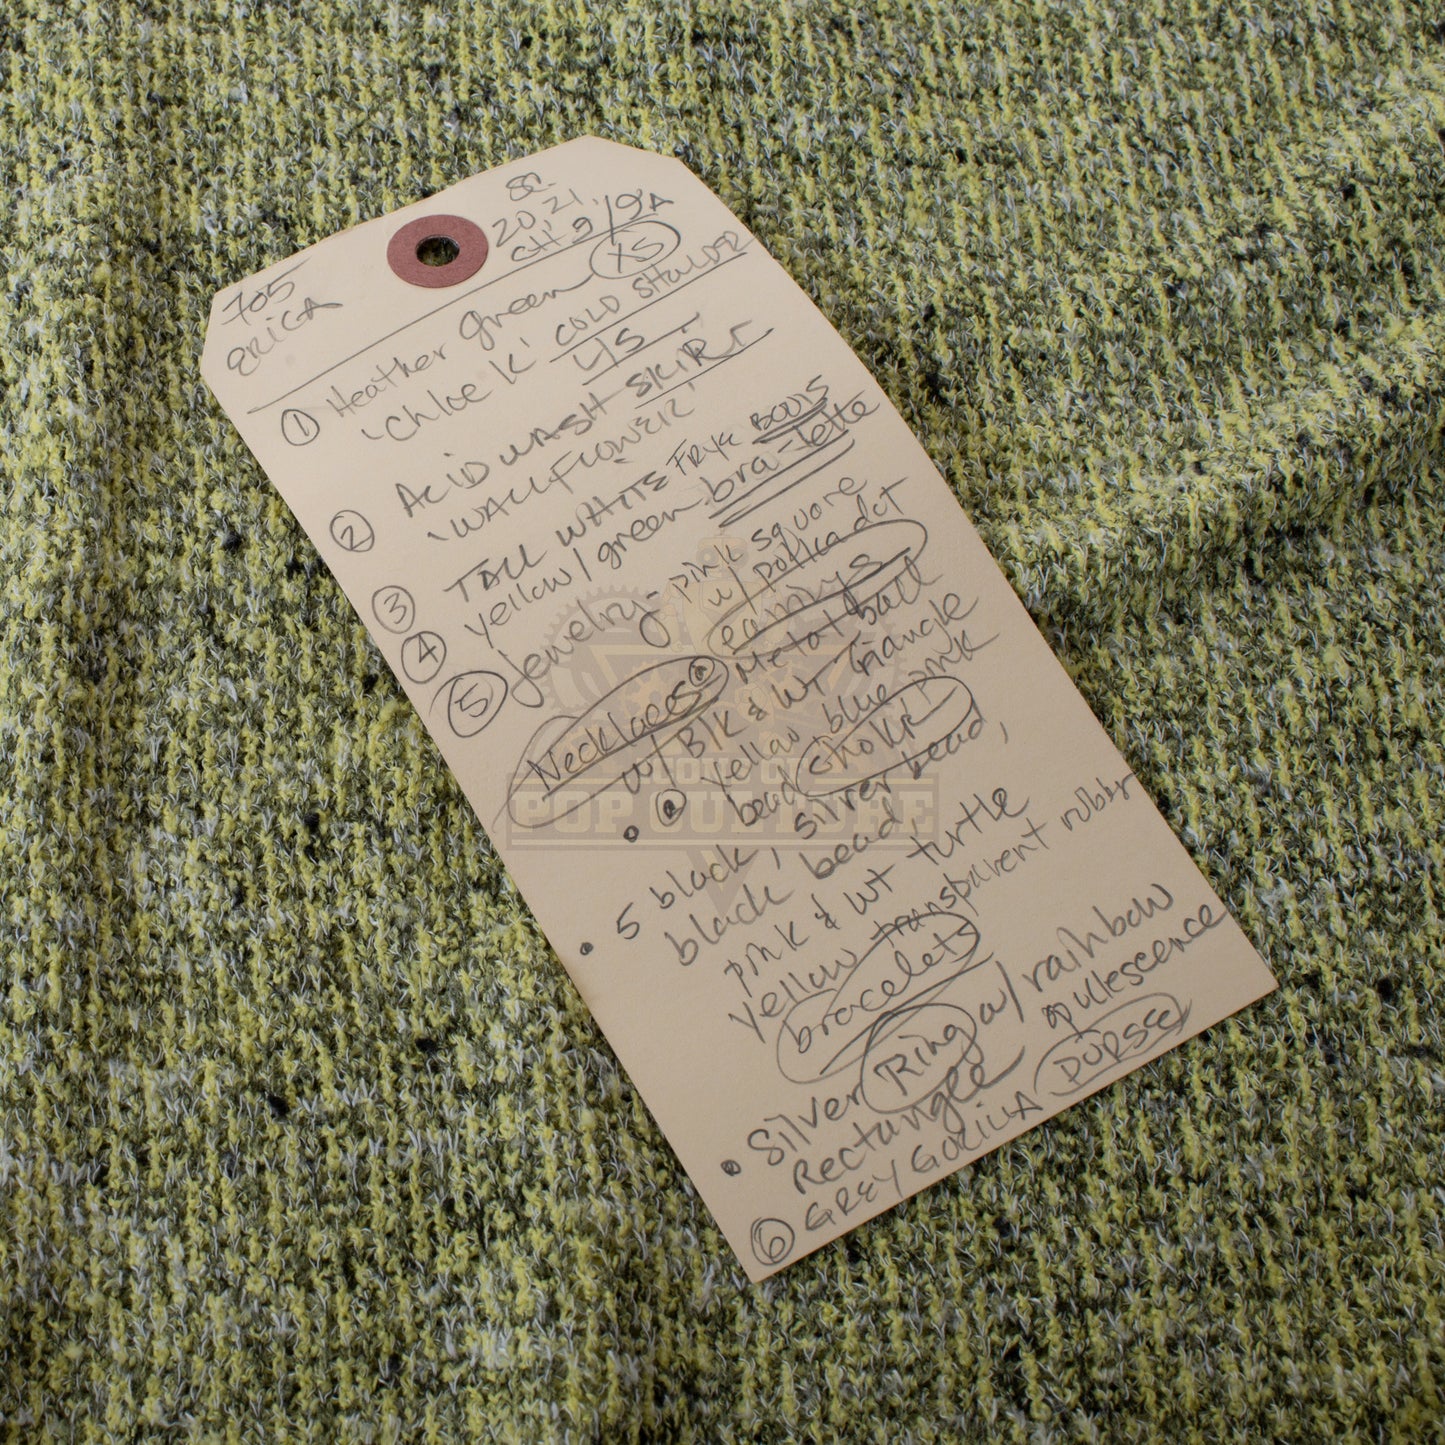 705
ERICA
SC.
20, 21,
CH. 9/9A
① Heather green XS
'Chloe K' COLD SHOLDER
② ACID WASH SKIRT
'WALLFLOWER'
③ TALL WHITE FRYE BOOTS
④ yellow/green bra-lette
⑤ Jewelry- pink square
w/ polka dot
earrings
Necklaces Metal ball
w/ BlK & WT Triangle
yellow blue pink
bead chokr
5 black, silver bead,
black bead
pink & WT turtle
yellow transparent rubbr
bracelets
• Silver Ring w/ rainbow
Rectangle
⑥ GREY GORILLA PURSSE
LOUPE OF
POP CULTURE